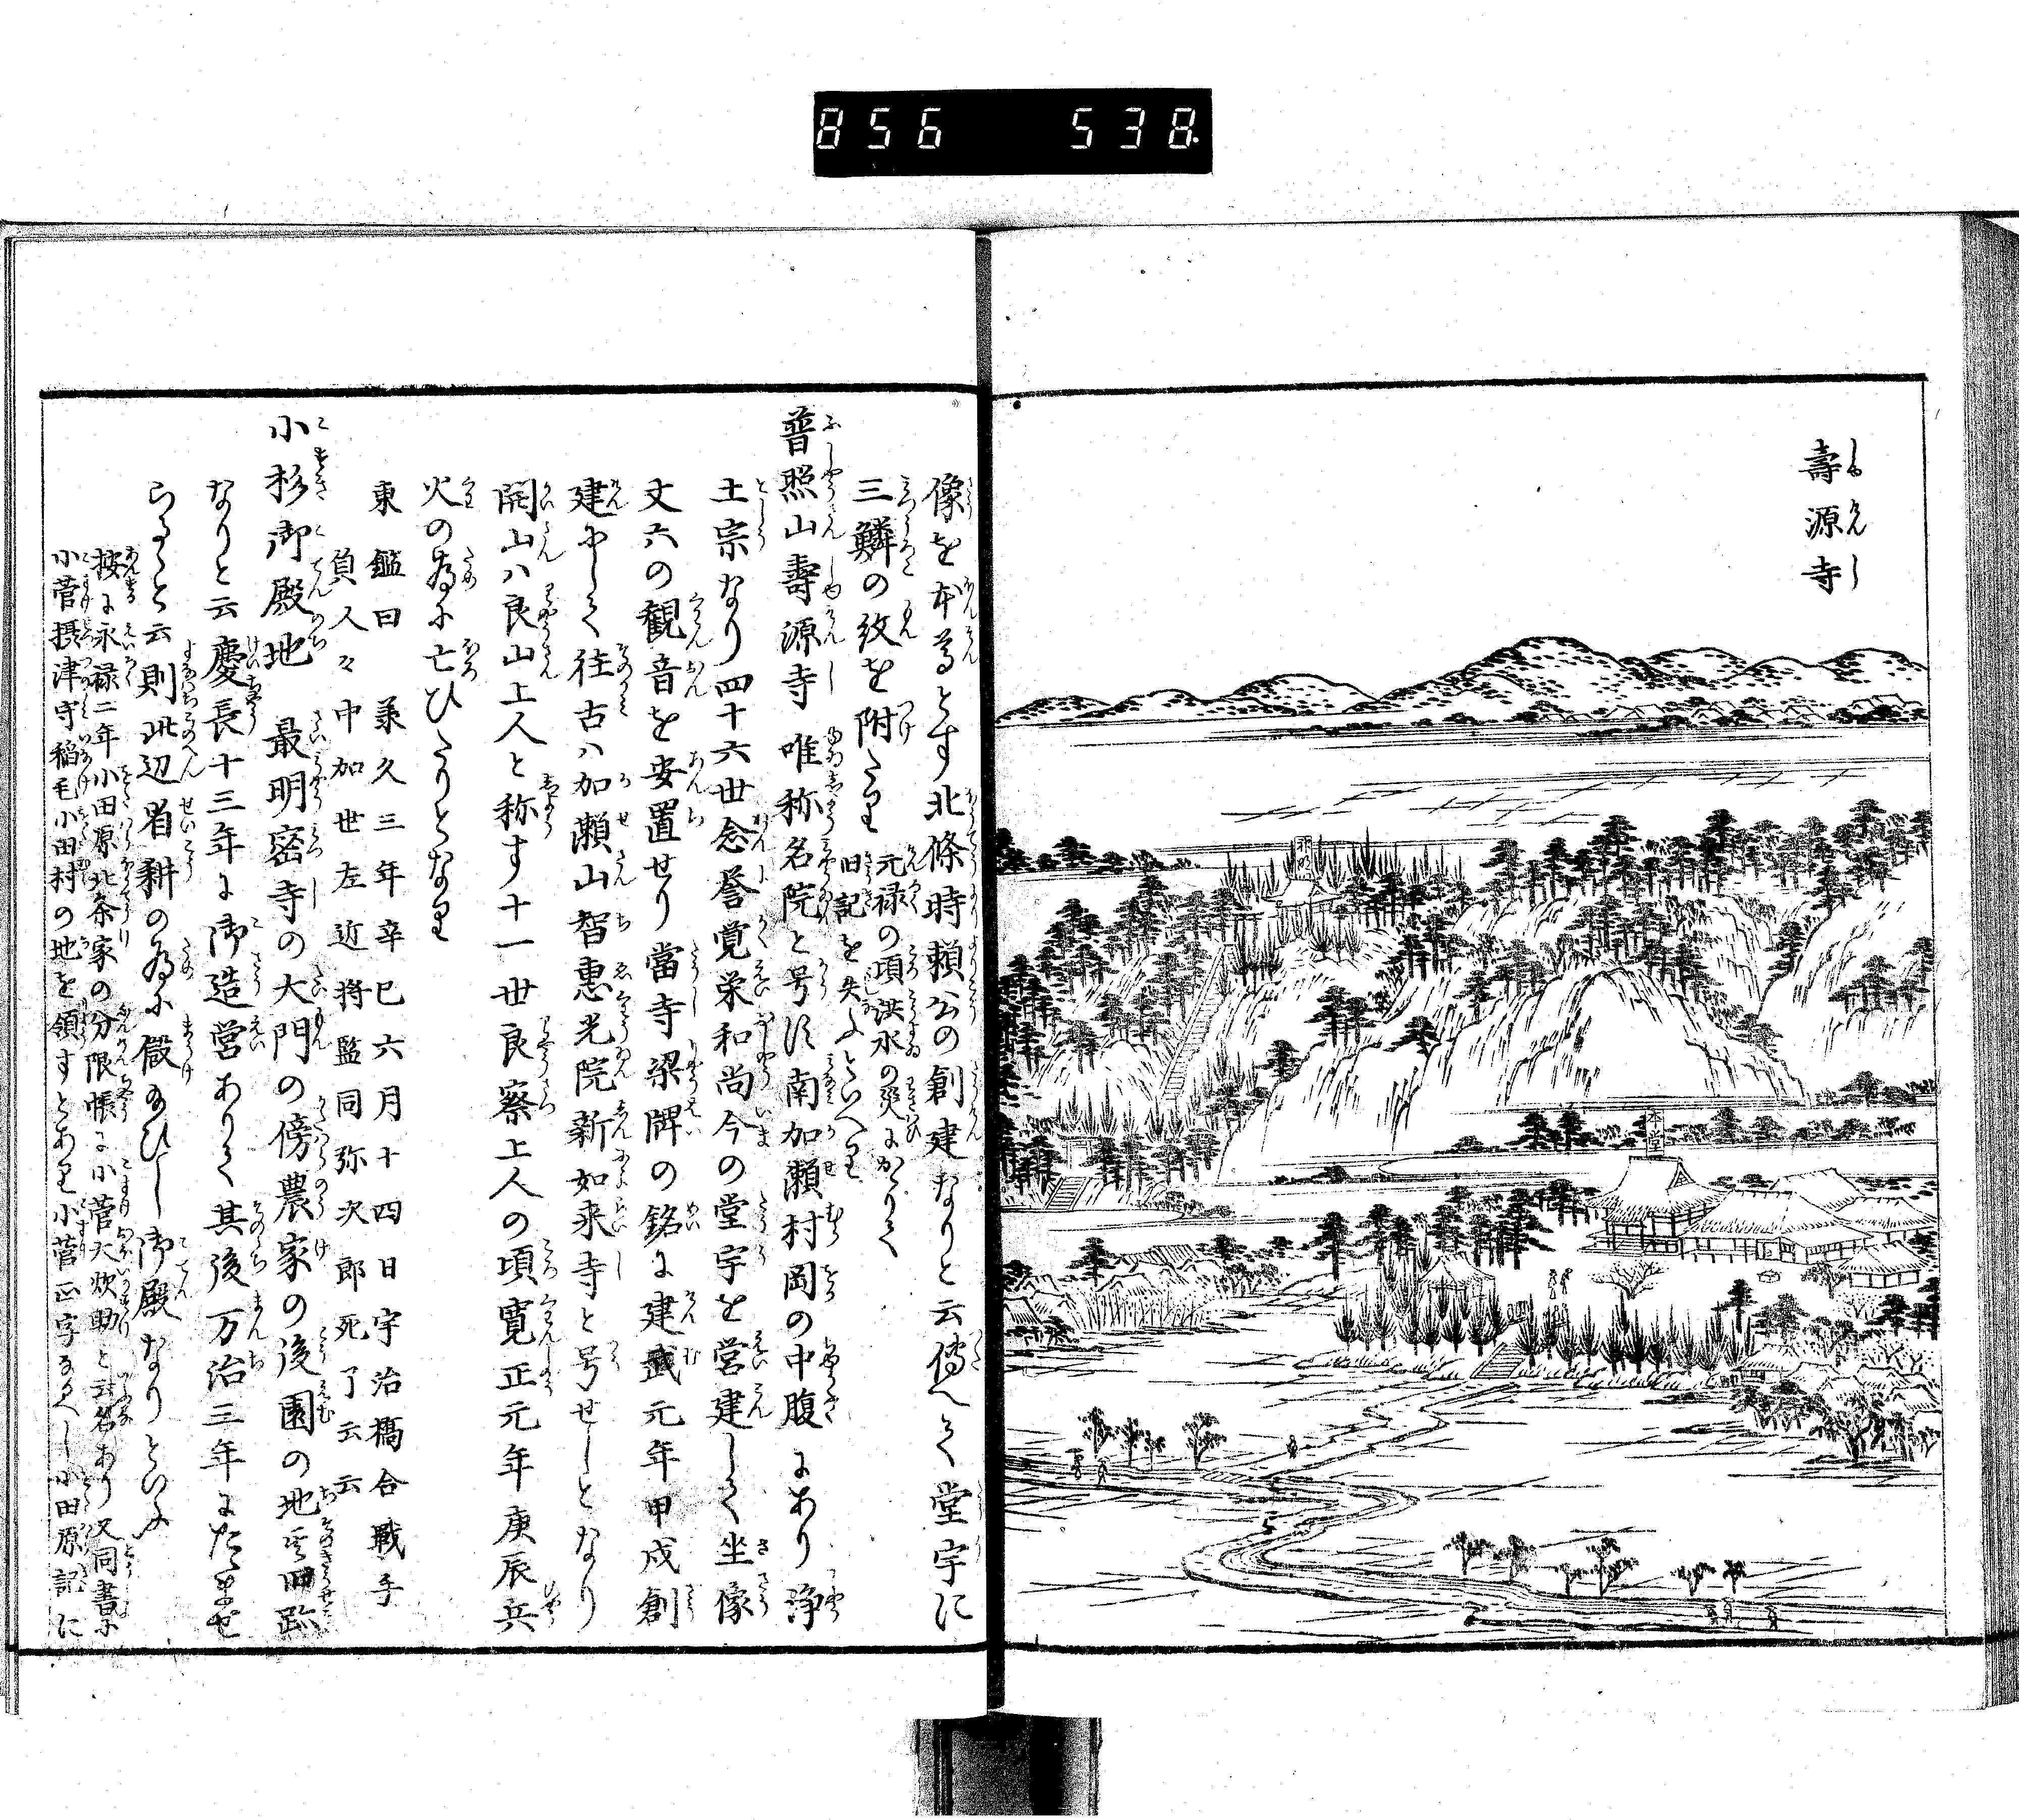 856 538
壽源寺
神明
本堂
像を本尊とす北條時頼公の創建なりと云傳へて堂宇に
三鱗の紋を附たり
元禄の頃洪水の災にかゝりて
旧記を失ふといへり
普照山壽源寺 唯称名院と号す南加瀬村岡の中腹にあり浄
土宗なり四十六世念誉覚栄和尚今の堂宇を営建して坐像
丈六の観音を安置せり當寺梁牌の銘に建武元年甲戌創
建にして往古ハ加瀬山智恵光院新如来寺と号せしとなり
開山ハ良山上人と称す十一世良察上人の頃寛正元年庚辰兵
火の為に亡ひたりとなり
東鑑曰 承久三年辛巳六月十四日宇治橋合戰手
負人々中加世左近将監同弥次郎死了云云
小杉御殿地 最明密寺の大門の傍農家の後園の地其旧跡
なりと云慶長十三年に御造営ありて其後万治三年にたゝませ
らると云則此辺省耕の為に儲給ひし御殿なりといふ
按に永禄二年小田原北条家の分限帳に小菅大炊助と云名あり又同書に
小菅摂津守稲毛小田村の地を領すとあり小菅正字なるへし小田原記に